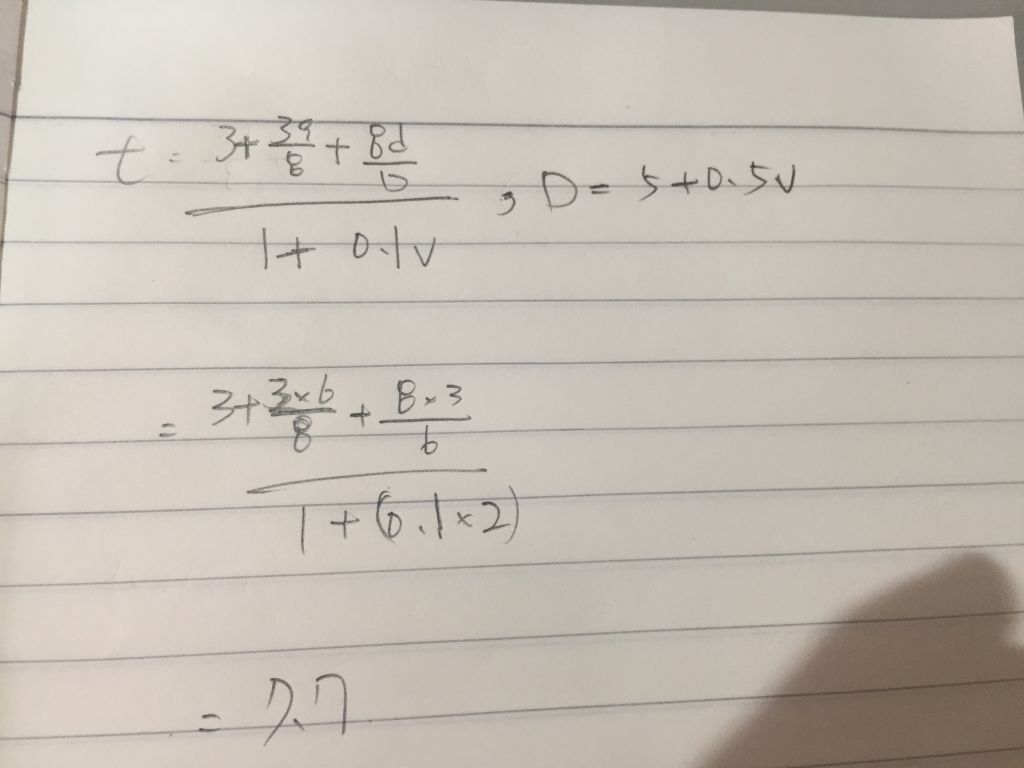 t = (3 + 39/8 + 8d/D) / (1 + 0.1v) , D = 5 + 0.5v
= (3 + 3×6/8 + 8×3/6) / (1 + (0.1×2))
= 7.7